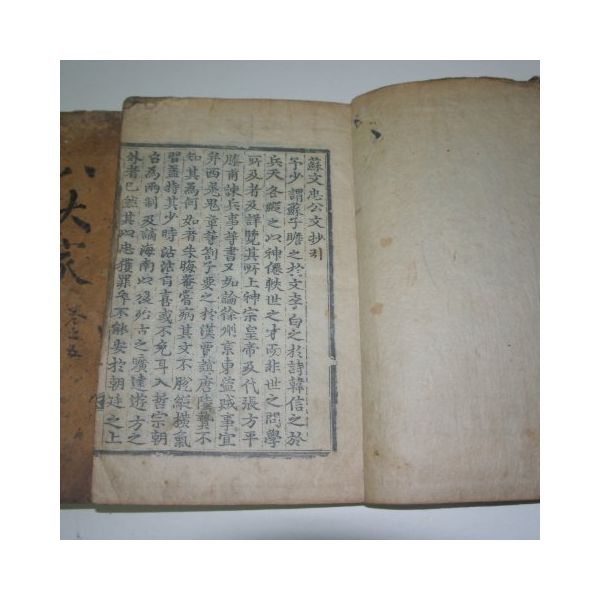 蘇文忠公文抄引
予少謂蘇子瞻之於文李白之於詩韓信之於
兵天各縱之以神僊軼世之才而非世之問學
所及者及詳覽其所上神宗皇帝及代張方平
滕甫諫兵事等書又如論徐州京東盜賊事宜
并西羌鬼章等劄子要之於漢賈誼唐陸贄不
知其爲何如者朱晦菴嘗病其文不脫縱橫氣
習盖特其少時沾沾自喜或不免耳入哲宗朝
召爲兩制及謫海南以後殆古之曠達遊方之
外者已然其以忠獲罪卒不能安於朝廷之上
八大家